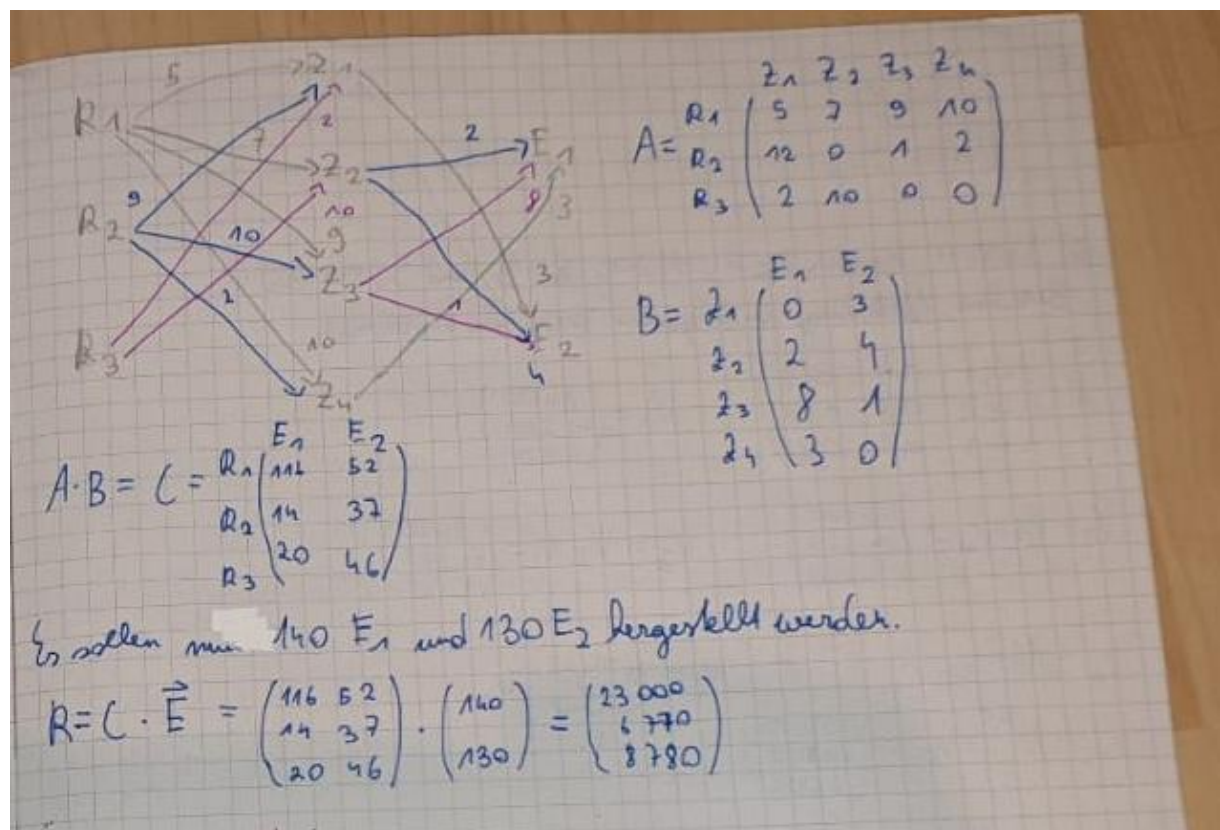 5 Z1
R1 7 2 2 E1
Z2
9 10 8 3
R2 10 9
Z3 3
2 1
R3 10 E2
4
Z4
Z1 Z2 Z3 Z4
A= R1 5 7 9 10
R2 12 0 1 2
R3 2 10 0 0
E1 E2
B= Z1 0 3
Z2 2 4
Z3 8 1
Z4 3 0
E1 E2
A·B = C = R1 116 52
R2 14 37
R3 20 46
Es sollen nun 140 E1 und 130 E2 hergestellt werden.
R = C · E⃗ = (116 52 14 37 20 46) · (140 130) = (23 000 6 770 8 780)